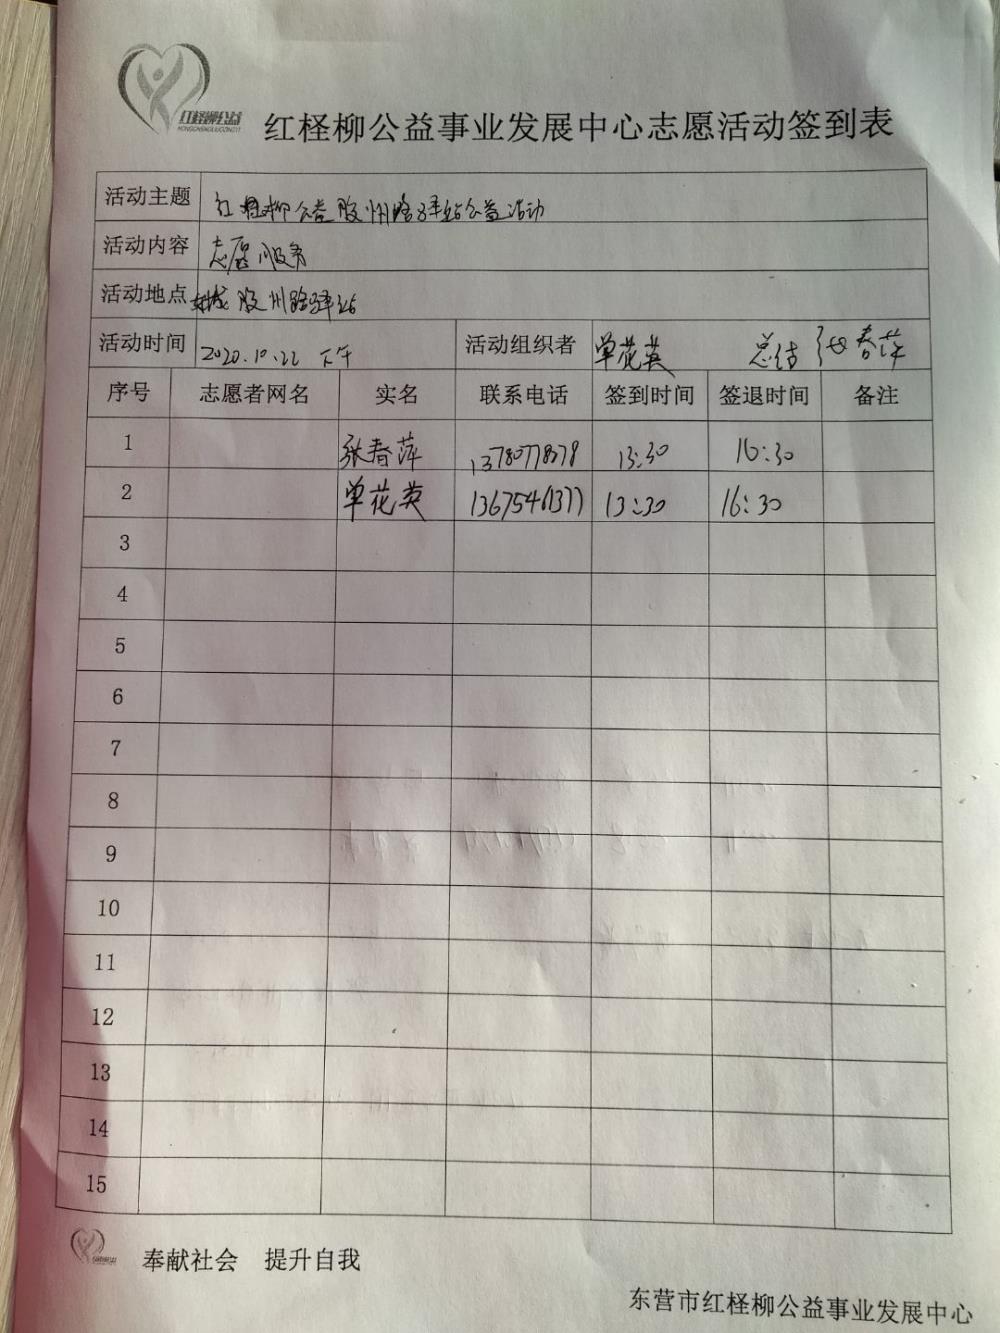 红柽柳公益
HONGCHENGLIUGONGYI
红柽柳公益事业发展中心志愿活动签到表
活动主题 红柽柳公益胶州路驿站公益活动
活动内容 志愿服务
活动地点 胶州路驿站
活动时间 2020.10.22 下午 活动组织者 单花英 总结 张春萍
序号 志愿者网名 实名 联系电话 签到时间 签退时间 备注
1 张春萍 13:30 16:30
2 单花英 13:30 16:30
3
4
5
6
7
8
9
10
11
12
13
14
15
奉献社会 提升自我
东营市红柽柳公益事业发展中心